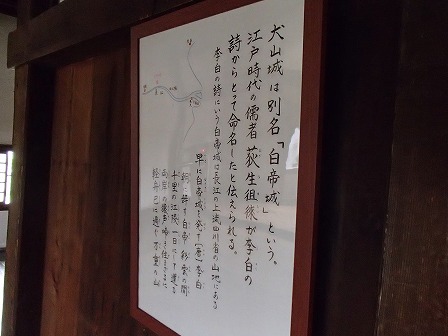 犬山城は別名「白帝城」という。
江戸時代の儒者 荻生徂徠が李白の
詩からとって命名したと伝えられる。
李白の詩にいう白帝城は長江の上流四川省の山地にある
早に白帝城を発す（唐）李白
朝に辞す白帝 彩雲の間
千里の江陵 一日にして還る
両岸の猿声 啼き住まざるに
軽舟已に過ぐ 万重の山